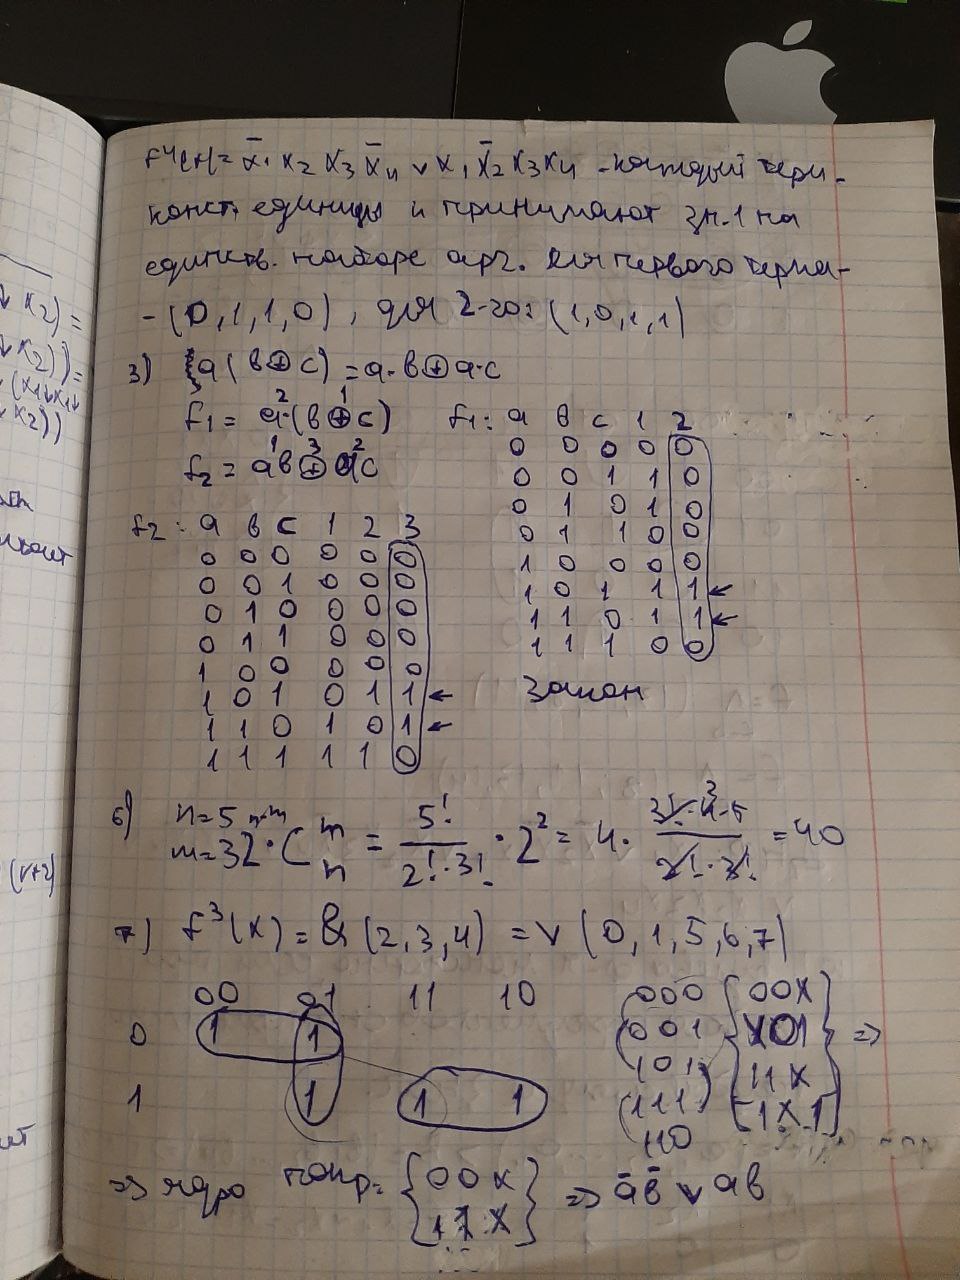 x2) =
x2)) =
(x1↓x1↓
x2))
(r+2)
f⁴(x) = x̄1 x2 x3 x̄4 ∨ x1 x̄2 x3 x4 - каждый терм-
конст. единицы и принимают зн. 1 на
единств. наборе арг. Для первого терма-
- (0,1,1,0), для 2-го: (1,0,1,1)
3) a(b⊕c) = a·b⊕a·c
f1 = a·(b⊕c)
2 1
f2 = ab⊕ac
1 3 2
f1: a b c 1 2
0 0 0 0 0
0 0 1 1 0
0 1 0 1 0
0 1 1 0 0
1 0 0 0 0
1 0 1 1 1 ←
1 1 0 1 1 ←
1 1 1 0 0
Закон
f2: a b c 1 2 3
0 0 0 0 0 0
0 0 1 0 0 0
0 1 0 0 0 0
0 1 1 0 0 0
1 0 0 0 0 0
1 0 1 0 1 1 ←
1 1 0 1 0 1 ←
1 1 1 1 1 0
6) n=5
m=3 2ⁿ⁻ᵐ · C m n = 5!/(2!·3!) · 2² = 4 · 3!·4·5/(2!·3!) = 40
7) f³(x) = & (2,3,4) = ∨ (0,1,5,6,7)
00 01 11 10
0 1 1
1 1 1 1
000
001
101
111
110
{00X
X01
11X
1X1} =>
=> ядро покр = {00X
11X} => āb̄ ∨ ab